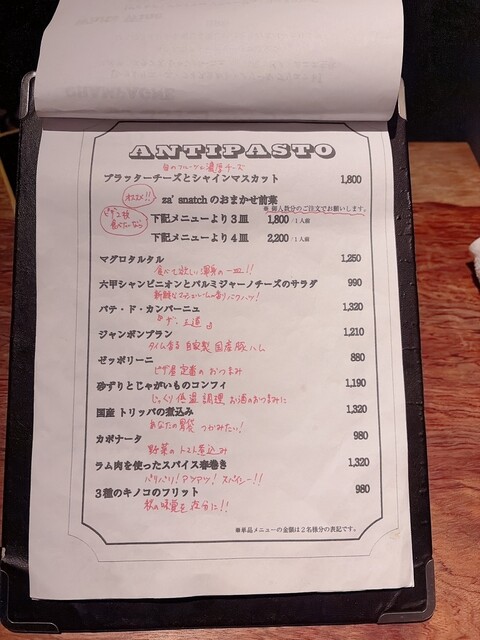 ANTIPASTO
旬のフルーツと濃厚チーズ
ブラッターチーズとシャインマスカット 1,800
オススメ!!
za' snatch のおまかせ前菜
※ 御人数分のご注文でお願いします。
下記メニューより3皿 1,800 /1人前
食べたいなら
下記メニューより4皿 2,200 /1人前
マグロタルタル 1,250
食べて欲しい渾身の一皿!!
六甲シャンピニオンとパルミジャーノチーズのサラダ 990
パテ・ド・カンパーニュ 1,320
『ザ、王道』
ジャンボンブラン 1,210
タイム香る 自家製 国産豚ハム
ゼッポリーニ 880
ピザ屋 定番の おつまみ
砂ずりとじゃがいものコンフィ 1,190
じっくり 低温 調理 お酒のおつまみに
国産 トリッパの煮込み 1,320
あなたの胃袋 つかみたい!
カポナータ 980
野菜の トマト煮込み
ラム肉を使ったスパイス春巻き 1,320
パリパリ! アツアツ! スパイシー!!
3種のキノコのフリット 980
秋の味覚を 存分に!!
※単品メニューの金額は2名様分の表記です。